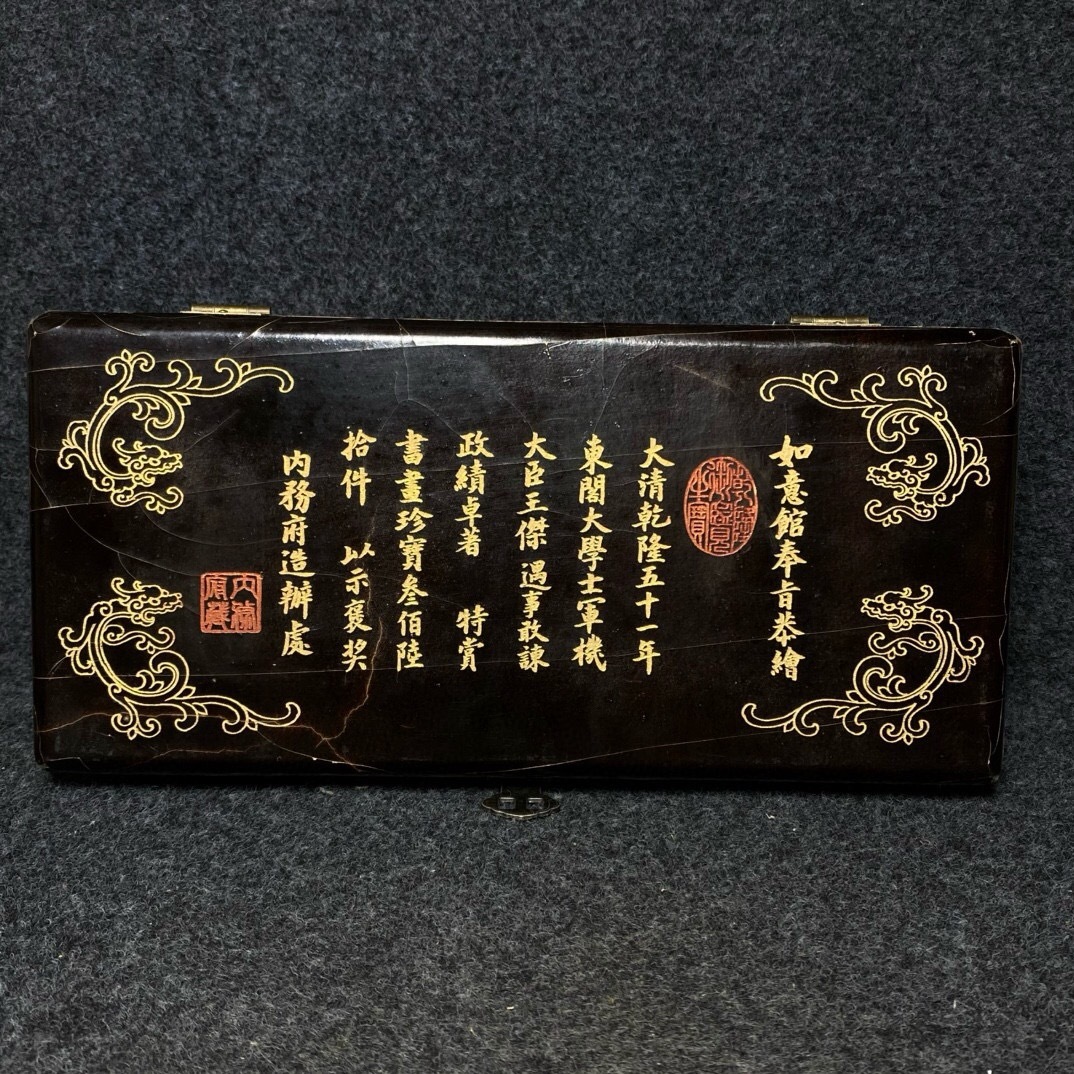 如意館奉旨恭繪
大清乾隆五十一年
東閣大學士軍機
大臣王傑 遇事敢諫
政績卓著 特賞
書畫珍寶叁佰陸
拾件 以示褒奖
内務府造辦處